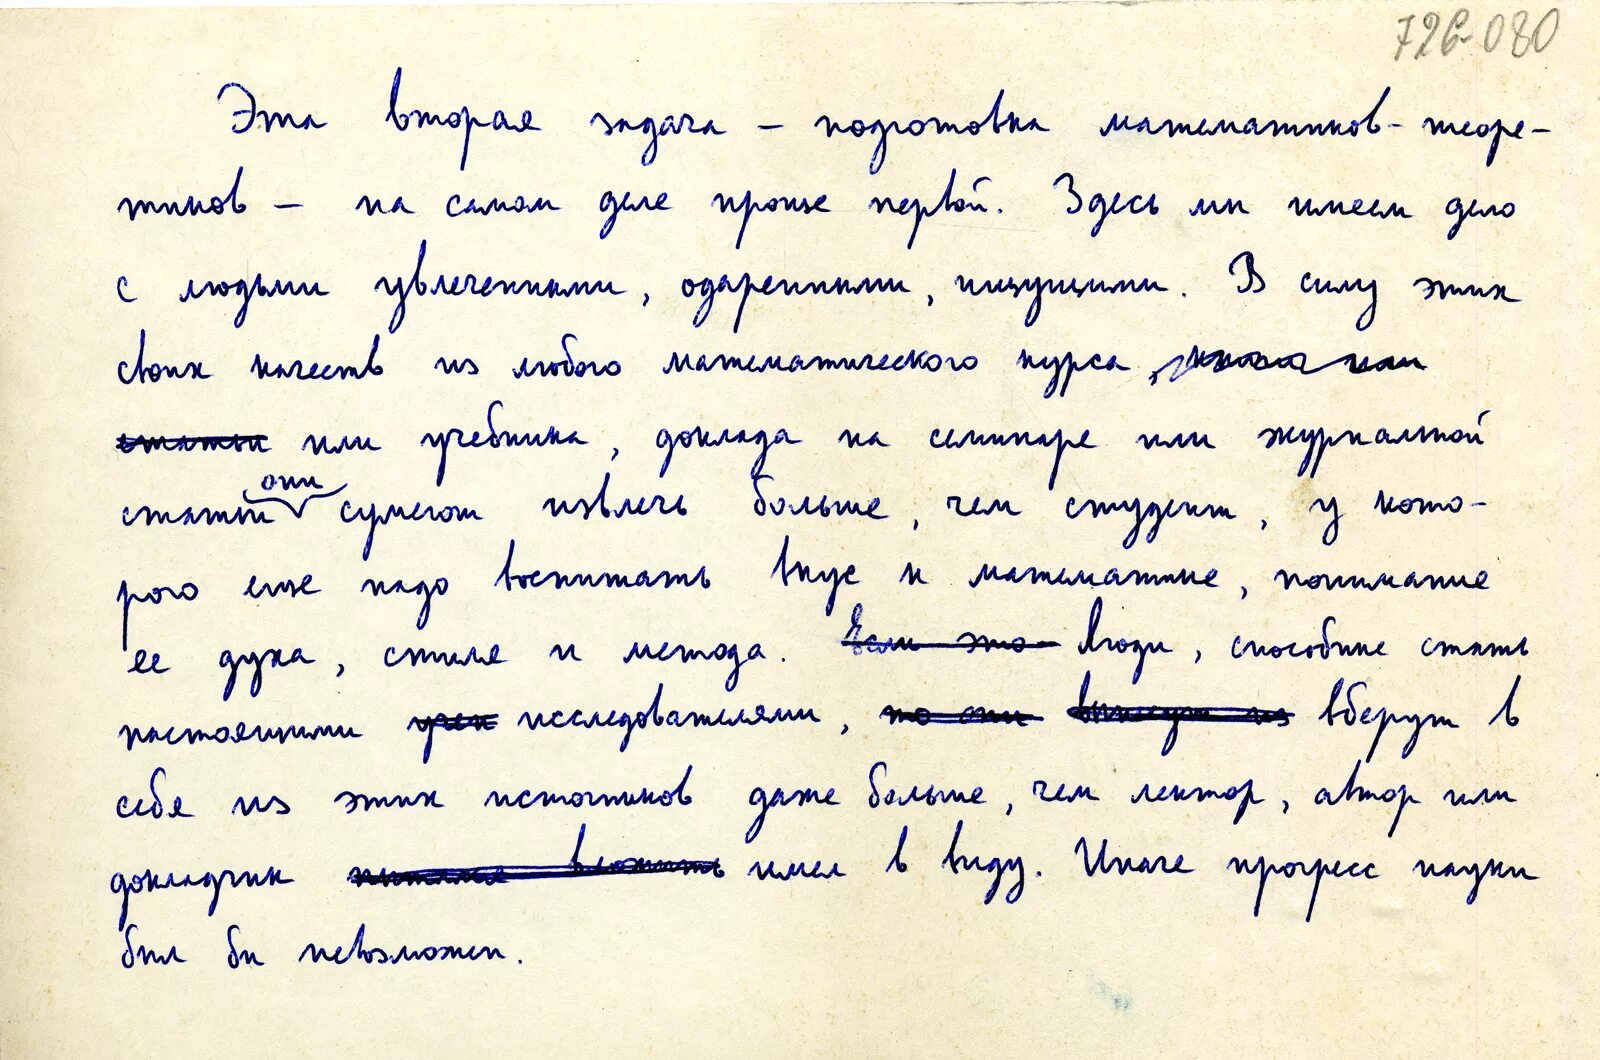 726-080
Эта вторая задача — подготовка математиков-теоре-
тиков — на самом деле проще первой. Здесь мы имеем дело
с людьми увлеченными, одаренными, ищущими. В силу этих
своих качеств из любого математического курса, или
статьи или учебника, доклада на семинаре или журнальной
они
статьи сумеют извлечь больше, чем студент, у кото-
рого еще надо воспитать вкус к математике, понимание
ее духа, стиля и метода. Если это люди, способные стать
настоящими учен исследователями, то они вынесут из вберут в
себя из этих источников даже больше, чем лектор, автор или
докладчик пытался вложить имел в виду. Иначе прогресс науки
был бы невозможен.